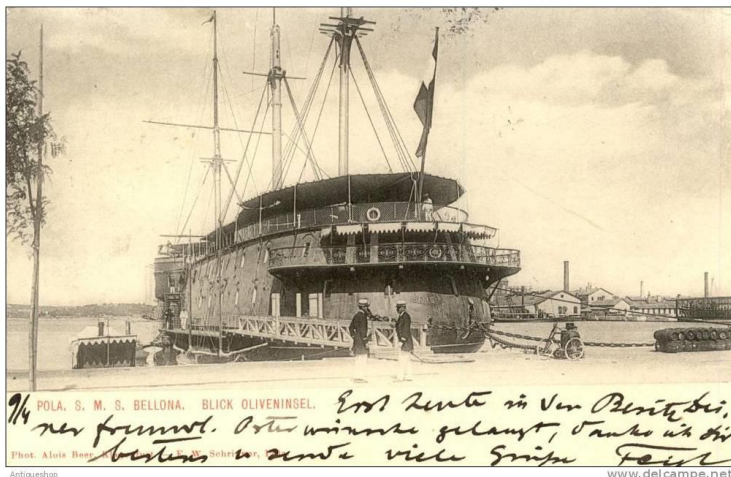 POLA. S. M. S. BELLONA. BLICK OLIVENINSEL.
9/4 Erst heute in den Besitz Dei,
ner freundl. Osterwünsche gelangt, danke ich dir
bestens u sende viele Grüße
Phot. Alois Beer, F. W. Schrinner,
Antiqueshop
www.delcampe.net